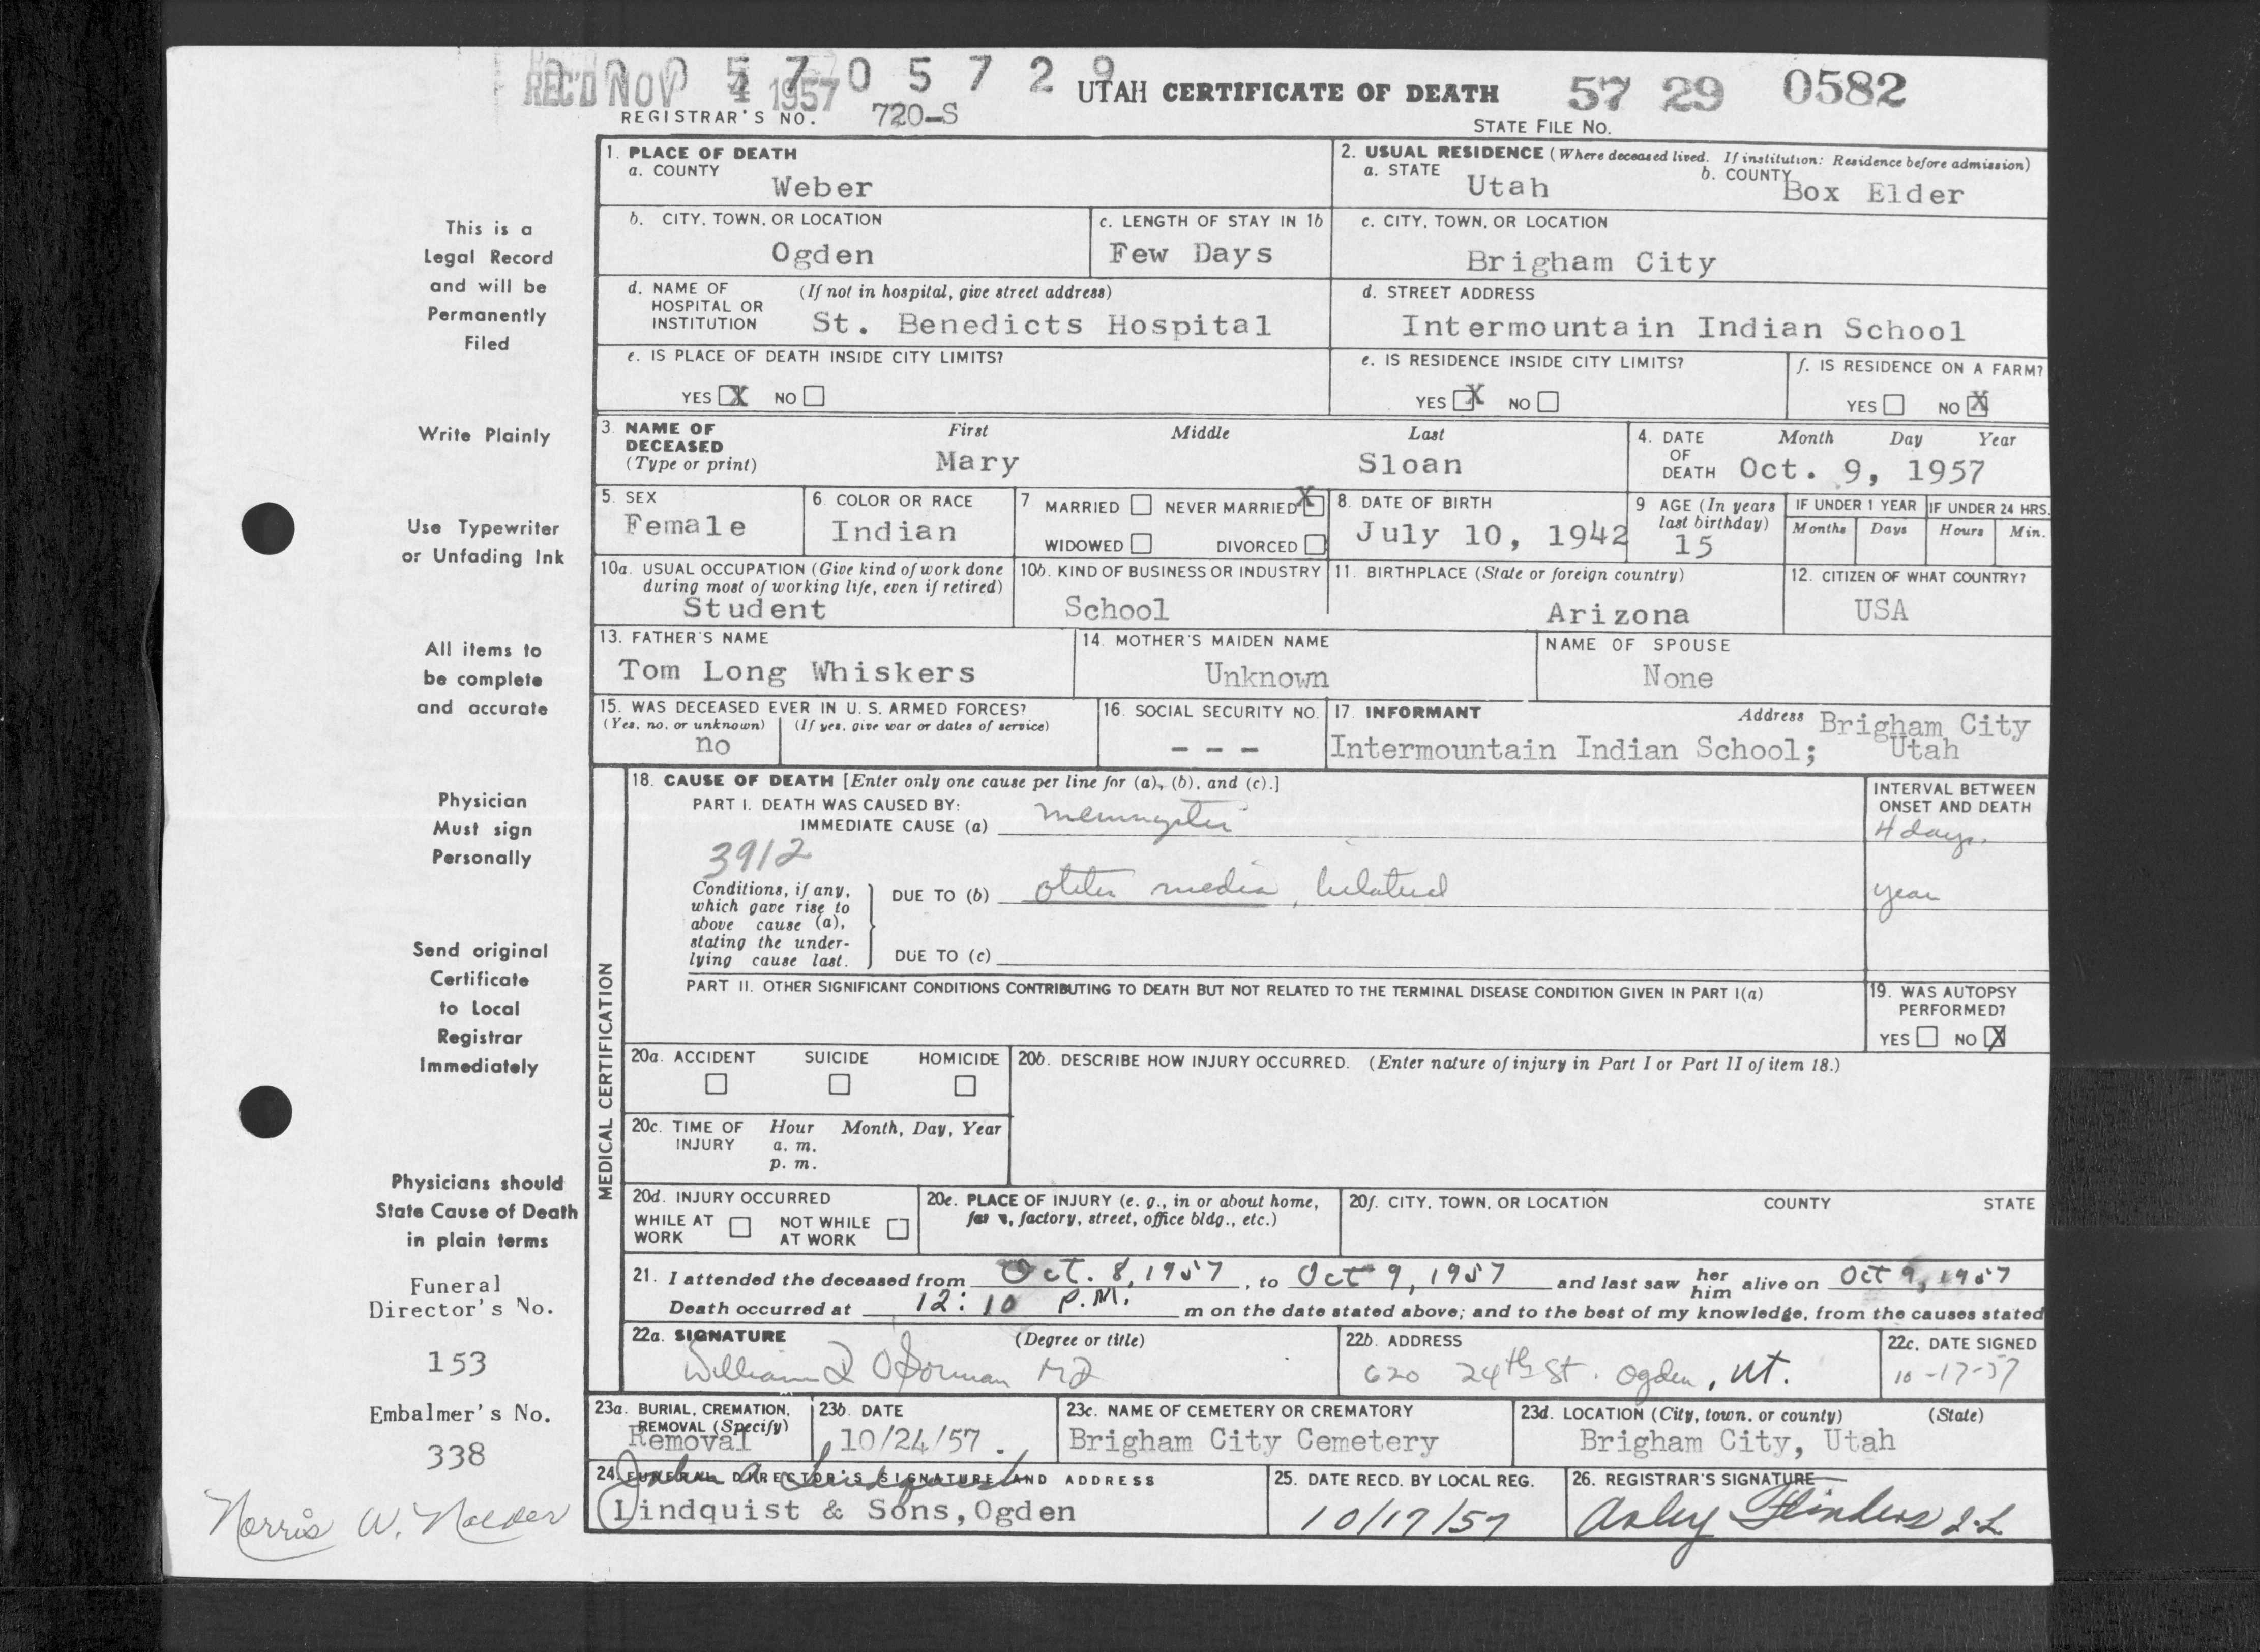 REC'D NOV 4 1957
0 5 7 0 5 7 2 9
UTAH CERTIFICATE OF DEATH 57 29 0582
REGISTRAR'S NO. 720-S
STATE FILE NO.
This is a
Legal Record
and will be
Permanently
Filed
Write Plainly
Use Typewriter
or Unfading Ink
All items to
be complete
and accurate
Physician
Must sign
Personally
Send original
Certificate
to Local
Registrar
Immediately
Physicians should
State Cause of Death
in plain terms
Funeral
Director's No.
153
Embalmer's No.
338
Norris W.
1. PLACE OF DEATH
a. COUNTY
Weber
2. USUAL RESIDENCE (Where deceased lived. If institution: Residence before admission)
a. STATE Utah b. COUNTY Box Elder
b. CITY, TOWN, OR LOCATION
Ogden
c. LENGTH OF STAY IN 1b
Few Days
c. CITY, TOWN, OR LOCATION
Brigham City
d. NAME OF HOSPITAL OR INSTITUTION (If not in hospital, give street address)
St. Benedicts Hospital
d. STREET ADDRESS
Intermountain Indian School
e. IS PLACE OF DEATH INSIDE CITY LIMITS?
YES X NO
e. IS RESIDENCE INSIDE CITY LIMITS?
YES X NO
f. IS RESIDENCE ON A FARM?
YES NO X
3. NAME OF DECEASED (Type or print)
First Middle Last
Mary Sloan
4. DATE OF DEATH
Month Day Year
Oct. 9, 1957
5. SEX
Female
6. COLOR OR RACE
Indian
7 MARRIED NEVER MARRIED X
WIDOWED DIVORCED
8. DATE OF BIRTH
July 10, 1942
9 AGE (In years last birthday)
15
IF UNDER 1 YEAR
Months Days
IF UNDER 24 HRS.
Hours Min.
10a. USUAL OCCUPATION (Give kind of work done during most of working life, even if retired)
Student
10b. KIND OF BUSINESS OR INDUSTRY
School
11. BIRTHPLACE (State or foreign country)
Arizona
12. CITIZEN OF WHAT COUNTRY?
USA
13. FATHER'S NAME
Tom Long Whiskers
14. MOTHER'S MAIDEN NAME
Unknown
NAME OF SPOUSE
None
15. WAS DECEASED EVER IN U. S. ARMED FORCES?
(Yes, no, or unknown) (If yes, give war or dates of service)
no
16. SOCIAL SECURITY NO.
- - -
17. INFORMANT Address
Intermountain Indian School; Brigham City Utah
MEDICAL CERTIFICATION
18. CAUSE OF DEATH [Enter only one cause per line for (a), (b), and (c).]
PART I. DEATH WAS CAUSED BY:
IMMEDIATE CAUSE (a) meningitis
INTERVAL BETWEEN ONSET AND DEATH
4 days.
3912
Conditions, if any, which gave rise to above cause (a), stating the underlying cause last.
DUE TO (b) otitis media, bilateral
year
DUE TO (c)
PART II. OTHER SIGNIFICANT CONDITIONS CONTRIBUTING TO DEATH BUT NOT RELATED TO THE TERMINAL DISEASE CONDITION GIVEN IN PART I(a)
19. WAS AUTOPSY PERFORMED?
YES NO X
20a. ACCIDENT SUICIDE HOMICIDE
20b. DESCRIBE HOW INJURY OCCURRED. (Enter nature of injury in Part I or Part II of item 18.)
20c. TIME OF INJURY Hour Month, Day, Year
a. m.
p. m.
20d. INJURY OCCURRED
WHILE AT WORK NOT WHILE AT WORK
20e. PLACE OF INJURY (e. g., in or about home, factory, street, office bldg., etc.)
20f. CITY, TOWN, OR LOCATION COUNTY STATE
21. I attended the deceased from Oct. 8, 1957, to Oct 9, 1957 and last saw her him alive on Oct 9, 1957
Death occurred at 12:10 P.M. m on the date stated above; and to the best of my knowledge, from the causes stated
22a. SIGNATURE (Degree or title)
William MD
22b. ADDRESS
620 24th St. Ogden, Ut.
22c. DATE SIGNED
10-17-57
23a. BURIAL, CREMATION, REMOVAL (Specify)
Removal
23b. DATE
10/24/57.
23c. NAME OF CEMETERY OR CREMATORY
Brigham City Cemetery
23d. LOCATION (City, town, or county) (State)
Brigham City, Utah
24. FUNERAL DIRECTOR'S SIGNATURE AND ADDRESS
Lindquist
Lindquist & Sons, Ogden
25. DATE RECD. BY LOCAL REG.
10/17/57
26. REGISTRAR'S SIGNATURE
Flinders